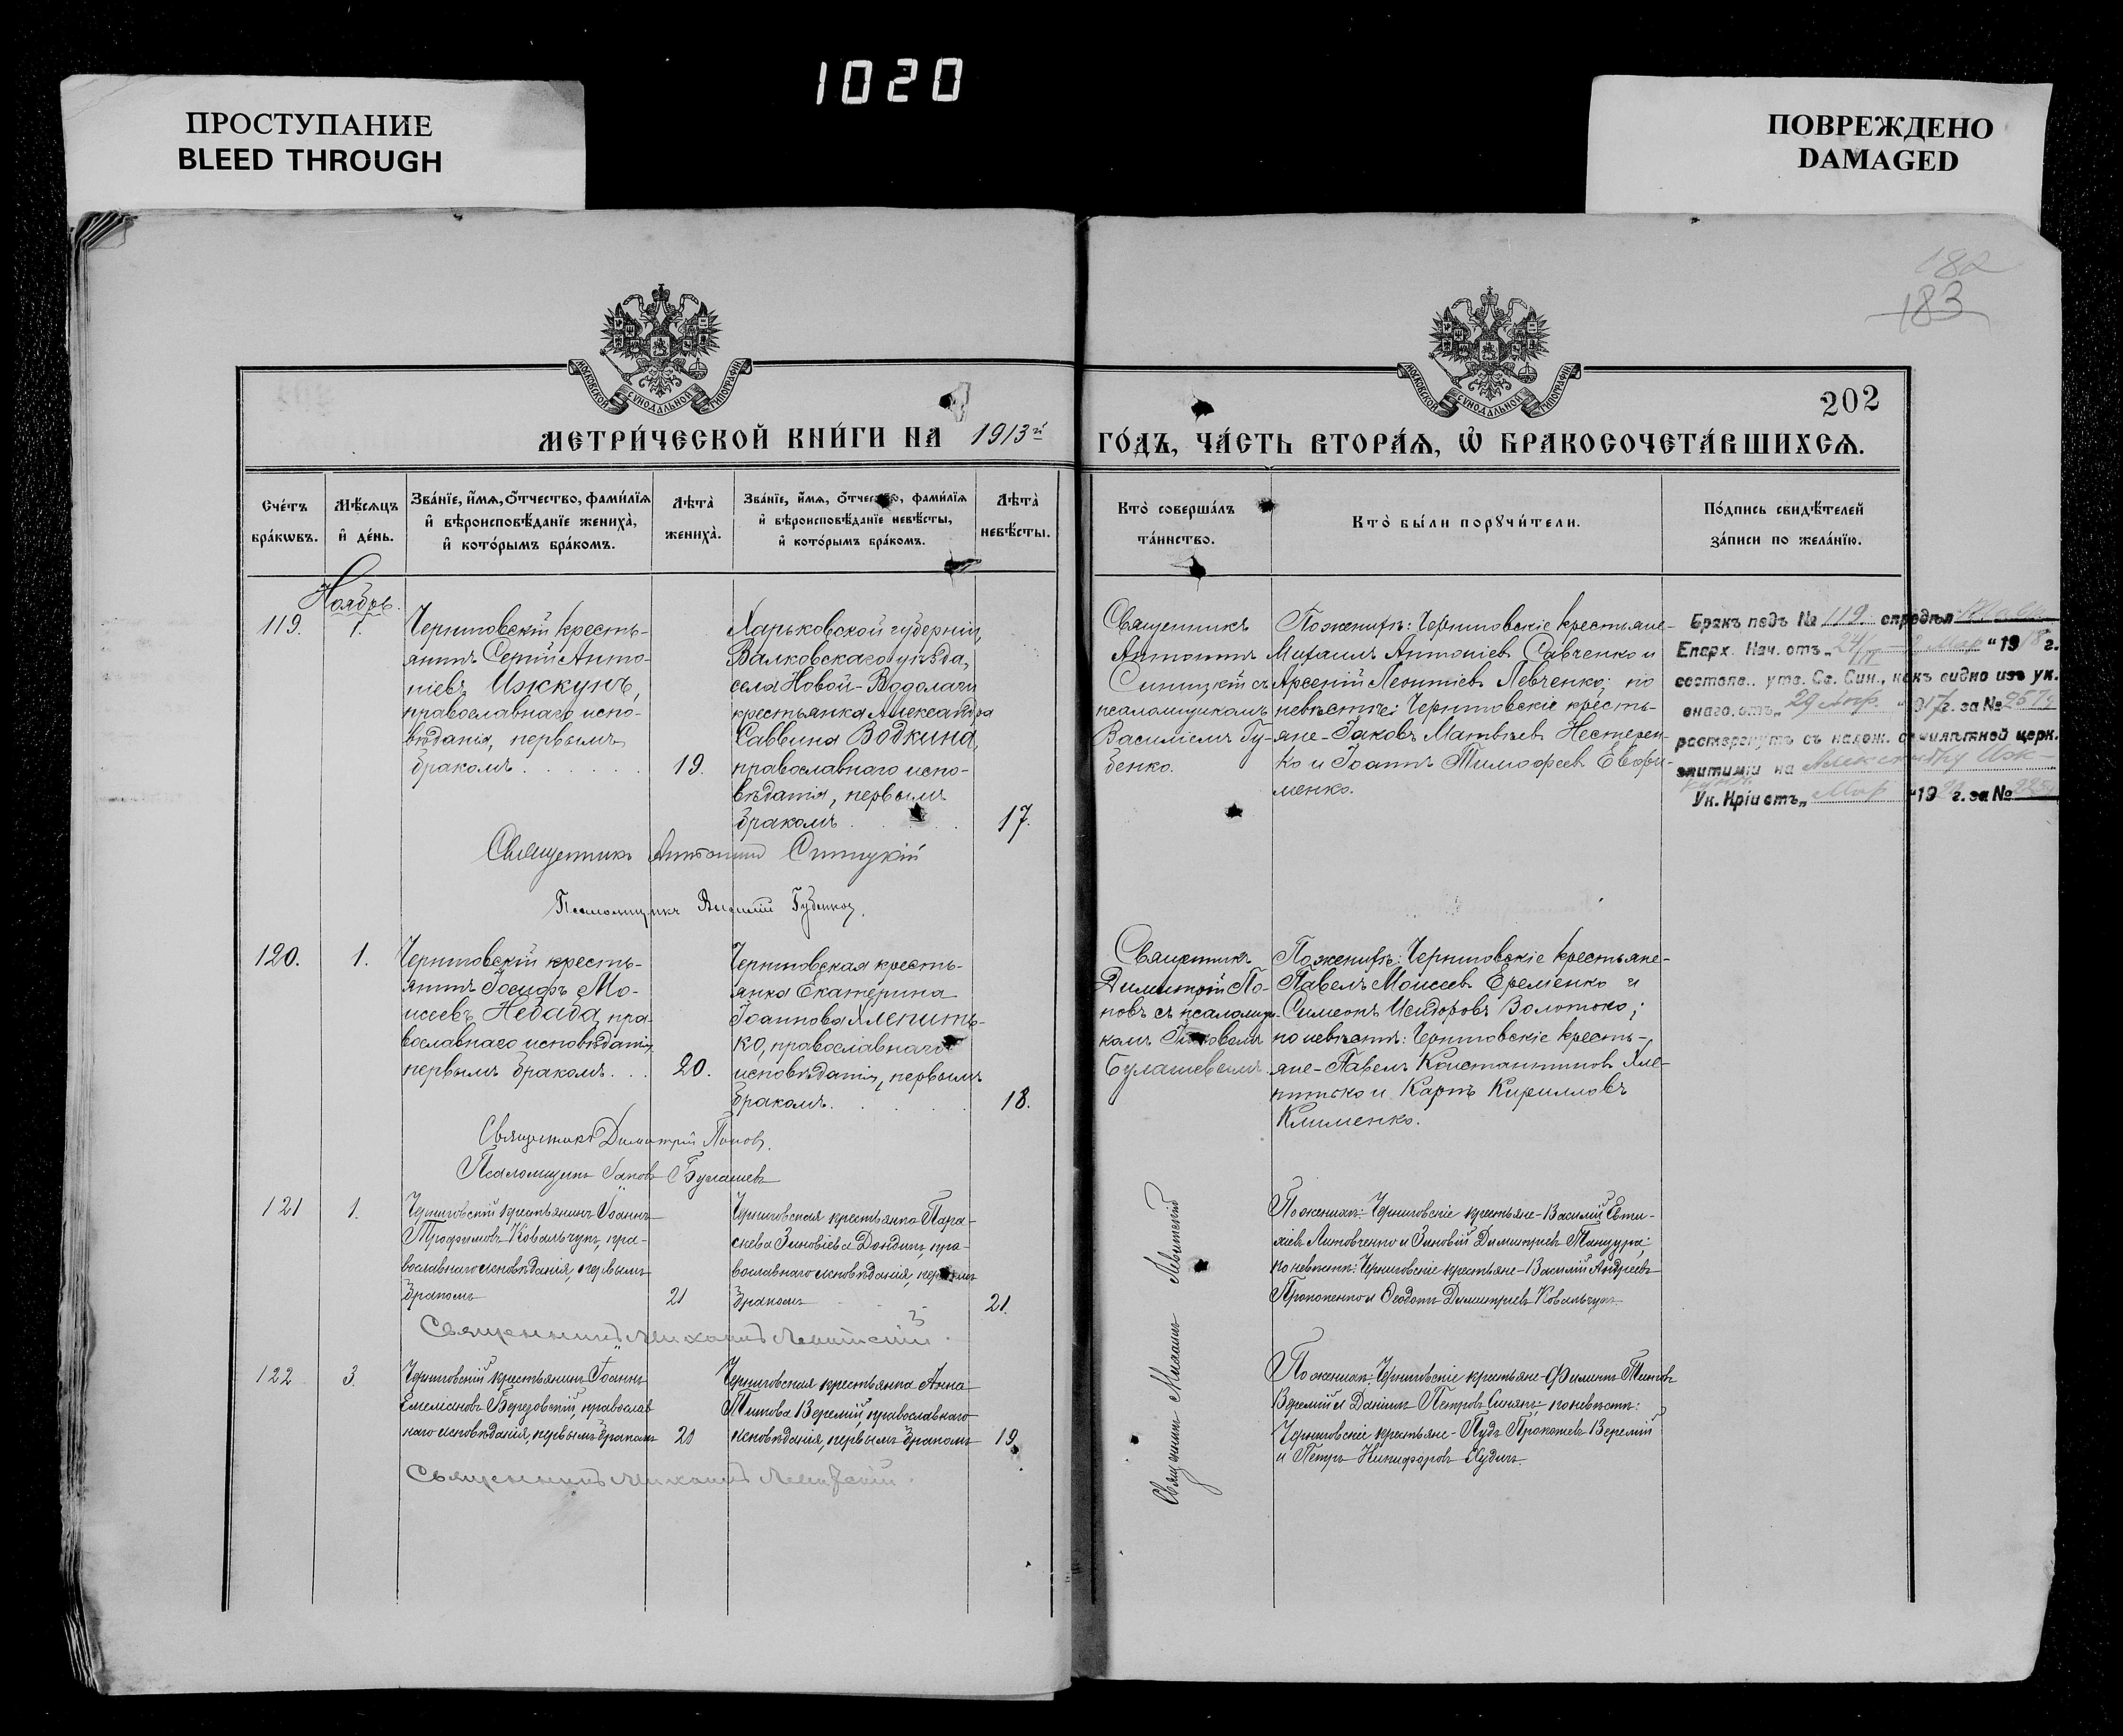 1020
ПРОСТУПАНИЕ
BLEED THROUGH
ПОВРЕЖДЕНО
DAMAGED
182
183
202
МОСКОВСКОЙ СѴНОДАЛЬНОЙ ТИПОГРАФІИ
МОСКОВСКОЙ СѴНОДАЛЬНОЙ ТИПОГРАФІИ
МЕТРИ́ЧЕСКОЙ КНИ́ГИ НА 1913й
ГО́ДЪ, ЧА́СТЬ ВТОРА́Я, Ѡ҆ БРАКОСОЧЕТА́ВШИХСЯ.
Сче́тъ бра́кѡвъ.
Мѣ́сяцъ и҆ де́нь.
Зва́нїе, и҆́мя, ѻ҆́тчество, фами́лїя и҆ вѣроисповѣ́данїе жениха̀, и҆ кото́рымъ бра́комъ.
Лѣта̀ жениха̀.
Зва́нїе, и҆́мя, ѻ҆́тчество, фами́лїя и҆ вѣроисповѣ́данїе невѣ́сты, и҆ кото́рымъ бра́комъ.
Лѣта̀ невѣ́сты.
Кто̀ соверша́лъ та́инство.
Кто̀ бы́ли порꙋчи́тели.
По́дпись свидѣ́телей за́писи по жела́нїю.
Ноябрь.
119.
1.
Черниговскій кресть-
янинъ Сергій Анто-
ніевъ Ижкунъ,
православнаго испо-
вѣданія, первымъ
бракомъ
19.
Харьковской губерніи,
Валковскаго уѣзда,
села Новой-Водолаги
крестьянка Александра
Саввина Водкина,
православнаго испо-
вѣданія, первымъ
бракомъ
17.
Священникъ
Антоній
Синицкій съ
псаломщикомъ
Василіемъ Гу-
бенко.
По женихѣ: Черниговскіе крестьяне-
Михаилъ Антоніевъ Савченко и
Арсеній Леонтіевъ Левченко; по
невѣстѣ: Черниговскіе кресть-
яне-Іаковъ Матвѣевъ Нестерен-
ко и Іоаннъ Тимофеевъ Ефре-
менко.
Бракъ подъ № 119. опредѣл
Епарх. Нач. отъ „24/II - 2 Мар “ 1918 г.
состояв.. утв. Св. Син., какъ видно изъ ук.
онаго. отъ „29 Апр. “ 917 г. за №
расторгнутъ съ налож. семилѣтней церк.
эпитиміи на Александру Иж-
куна
Ук. Кр҃іи отъ „ Мар “ 19 г. за №
Священникъ Антоній Синицкій
Псаломщикъ Василій Губенко.
120.
1.
Черниговскій кресть-
янинъ Іосифъ Мо-
исеевъ Недада, пра-
вославнаго исповѣданія,
первымъ бракомъ
20.
Черниговская кресть-
янка Екатерина
Іоаннова Ялепить-
ко, православнаго
исповѣданія, первымъ
бракомъ.
18.
Священникъ
Димитрій По-
повъ съ псаломщи-
комъ Іаковомъ
Булашевымъ.
По женихѣ: Черниговскіе крестьяне-
Павелъ Моисеевъ Еременко и
Симеонъ Исидоровъ Золотоко;
по невѣстѣ: Черниговскіе кресть-
яне-Павелъ Константиновъ Яле-
питько и Карпъ Кирилловъ
Клименко.
Священникъ Димитрій Поповъ.
Псаломщикъ Іаковъ Булашевъ
121
1.
Черниговскій крестьянинъ Іоаннъ
Трофимовъ Ковальчукъ, пра-
вославнаго исповѣданія, первымъ
бракомъ
21
Черниговская крестьянка Пара-
скева Зиновіева Дондикъ, пра-
вославнаго исповѣданія, первымъ
бракомъ
21.
По женихѣ: Черниговскіе крестьяне-Василій Евти-
хіевъ Линовченко и Зиновій Димитріевъ Танцура;
по невѣстѣ: Черниговскіе крестьяне-Василій Андреевъ
Прокопенко и Ѳеодотъ Димитріевъ Ковальчукъ.
Священникъ Михаилъ Левитскій.
122
3.
Черниговскій крестьянинъ Іоаннъ
Емеліановъ Березовскій, православ
наго исповѣданія, первымъ бракомъ
20
Черниговская крестьянка Анна
Титова Веремій, православнаго
исповѣданія, первымъ бракомъ
19.
По женихѣ: Черниговскіе крестьяне-Филиппъ Титовъ
Веремій и Даніилъ Петровъ Синякъ; по невѣстѣ:
Черниговскіе крестьяне-Пудъ Прокопіевъ Веремій
и Петръ Никифоровъ Кудинъ.
Священникъ Михаилъ Левитскій
Священникъ Михаилъ Левитскій.